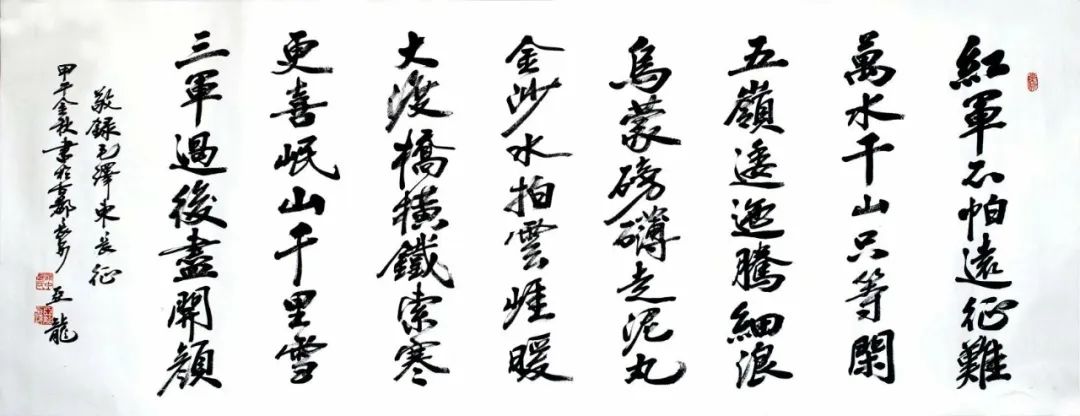 紅軍不怕遠征難
萬水千山只等閑
五嶺逶迤騰細浪
烏蒙磅礴走泥丸
金沙水拍雲崖暖
大渡橋橫鐵索寒
更喜岷山千里雪
三軍過後盡開顏
敬録毛澤東長征
甲午金秋書於古都長安 亚龍